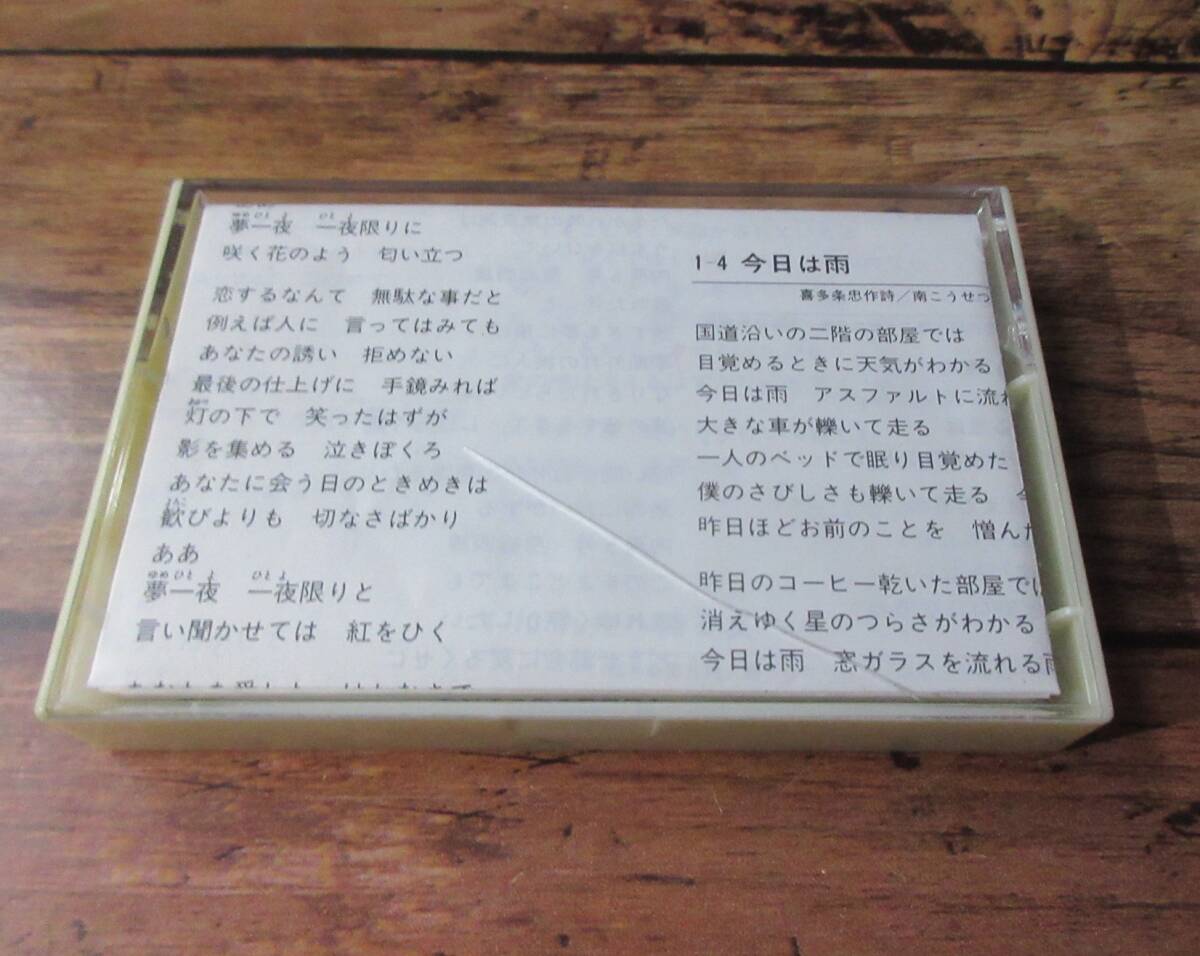 夢一夜　一夜限りに
咲く花のよう　匂い立つ
恋するなんて　無駄な事だと
例えば人に　言ってはみても
あなたの誘い　拒めない
最後の仕上げに　手鏡みれば
灯の下で　笑ったはずが
影を集める　泣きぼくろ
あなたに会う日のときめきは
歓びよりも　切なさばかり
ああ
夢一夜　一夜限りと
言い聞かせては　紅をひく
1-4 今日は雨
喜多条忠作詩／南こうせつ
国道沿いの二階の部屋では
目覚めるときに天気がわかる
今日は雨　アスファルトに流れ
大きな車が轢いて走る
一人のベッドで眠り目覚めた
僕のさびしさも轢いて走る　今
昨日ほどお前のことを　憎んだ
昨日のコーヒー乾いた部屋では
消えゆく星のつらさがわかる
今日は雨　窓ガラスを流れる雨